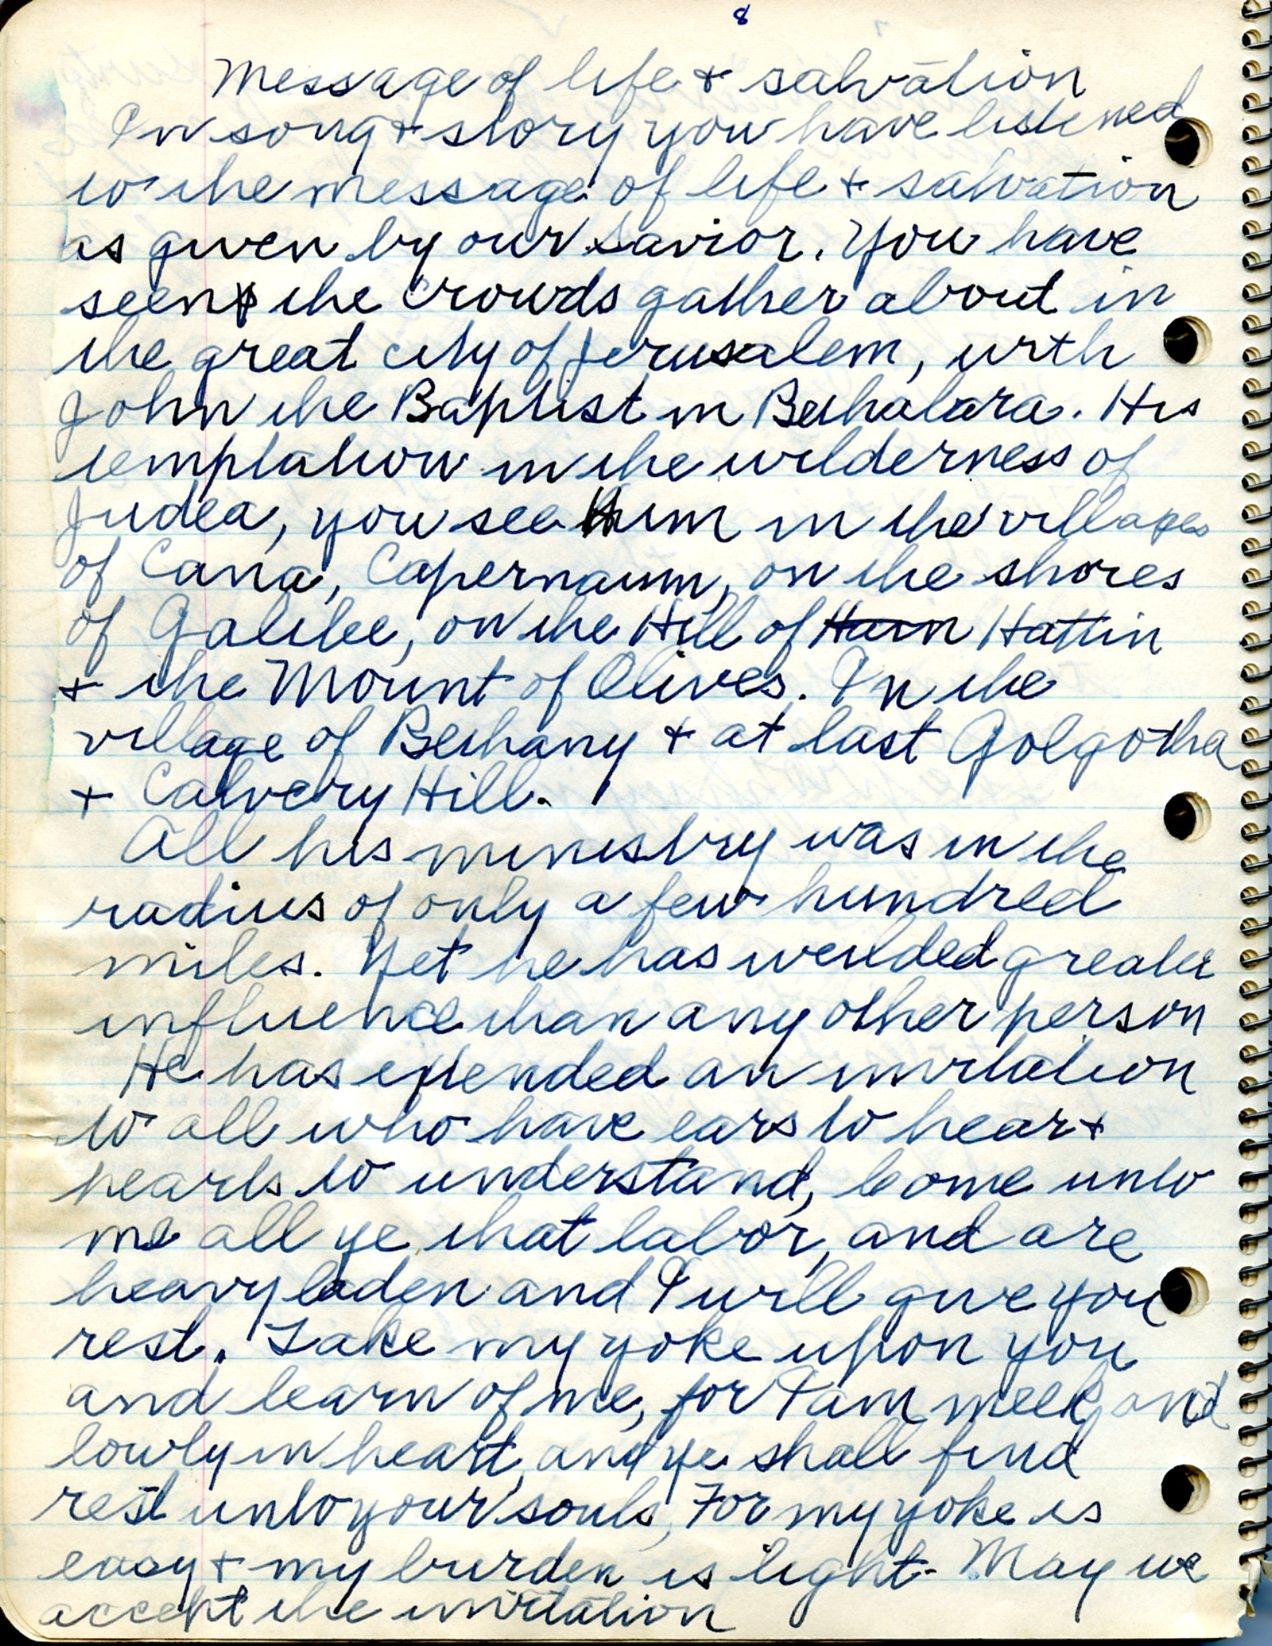 8
Message of life + salvation
In song + story you have listened
to the message of life + salvation
as given by our Savior. You have
seen the crowds gather about in
the great city of Jerusalem, with
John the Baptist in Bethabara. His
temptation in the wilderness of
Judea, you see Him in the villages
of Cana, Capernaum, on the shores
of Galilee, on the Hill of Hattin
+ the Mount of Olives. In the
village of Bethany + at last Golgotha
+ Calvery Hill.
All his ministry was in the
radius of only a few hundred
miles. Yet he has weilded greater
influence than any other person
He has extended an invitation
to all who have ears to hear +
hearts to understand, Come unto
me all ye that labor, and are
heavy laden and I will give you
rest. Take my yoke upon you
and learn of me, for I am meek and
lowly in heart, and ye shall find
rest unto your souls, For my yoke is
easy + my burden is light- May we
accept the invitation